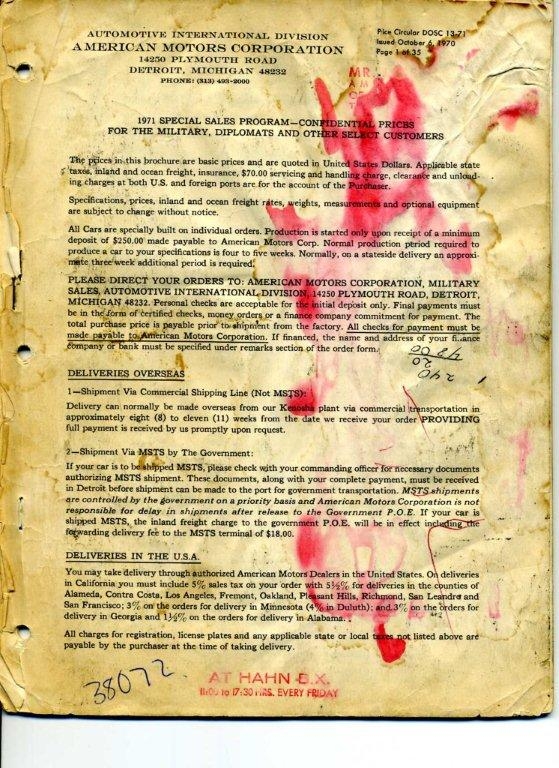 AUTOMOTIVE INTERNATIONAL DIVISION
AMERICAN MOTORS CORPORATION
14250 PLYMOUTH ROAD
DETROIT, MICHIGAN 48232
PHONE: (313) 493-2000
Price Circular DOSC 13-71
Issued October 6, 1970
Page 1 of 35
MR.
1971 SPECIAL SALES PROGRAM—CONFIDENTIAL PRICES
FOR THE MILITARY, DIPLOMATS AND OTHER SELECT CUSTOMERS
The prices in this brochure are basic prices and are quoted in United States Dollars. Applicable state
taxes, inland and ocean freight, insurance, $70.00 servicing and handling charge, clearance and unload-
ing charges at both U.S. and foreign ports are for the account of the Purchaser.
Specifications, prices, inland and ocean freight rates, weights, measurements and optional equipment
are subject to change without notice.
All Cars are specially built on individual orders. Production is started only upon receipt of a minimum
deposit of $250.00 made payable to American Motors Corp. Normal production period required to
produce a car to your specifications is four to five weeks. Normally, on a stateside delivery an approxi-
mate three week additional period is required.
PLEASE DIRECT YOUR ORDERS TO: AMERICAN MOTORS CORPORATION, MILITARY
SALES, AUTOMOTIVE INTERNATIONAL DIVISION, 14250 PLYMOUTH ROAD, DETROIT,
MICHIGAN 48232. Personal checks are acceptable for the initial deposit only. Final payments must
be in the form of certified checks, money orders or a finance company commitment for payment. The
total purchase price is payable prior to shipment from the factory. All checks for payment must be
made payable to American Motors Corporation. If financed, the name and address of your finance
company or bank must be specified under remarks section of the order form.
DELIVERIES OVERSEAS
1—Shipment Via Commercial Shipping Line (Not MSTS):
Delivery can normally be made overseas from our Kenosha plant via commercial transportation in
approximately eight (8) to eleven (11) weeks from the date we receive your order PROVIDING
full payment is received by us promptly upon request.
2—Shipment Via MSTS by The Government:
If your car is to be shipped MSTS, please check with your commanding officer for necessary documents
authorizing MSTS shipment. These documents, along with your complete payment, must be received
in Detroit before shipment can be made to the port for government transportation. MSTS shipments
are controlled by the government on a priority basis and American Motors Corporation is not
responsible for delay in shipments after release to the Government P.O.E. If your car is
shipped MSTS, the inland freight charge to the government P.O.E. will be in effect including the
forwarding delivery fee to the MSTS terminal of $18.00.
DELIVERIES IN THE U.S.A.
You may take delivery through authorized American Motors Dealers in the United States. On deliveries
in California you must include 5% sales tax on your order with 5½% for deliveries in the counties of
Alameda, Contra Costa, Los Angeles, Fremont, Oakland, Pleasant Hills, Richmond, San Leandro and
San Francisco; 3% on the orders for delivery in Minnesota (4% in Duluth); and 3% on the orders for
delivery in Georgia and 1½% on the orders for delivery in Alabama.
All charges for registration, license plates and any applicable state or local taxes not listed above are
payable by the purchaser at the time of taking delivery.
38072
AT HAHN B.X.
11:00 to 17:30 HRS. EVERY FRIDAY